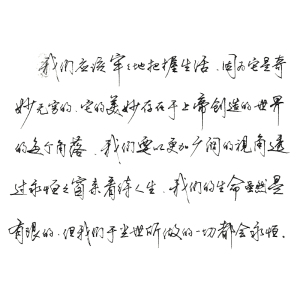 我们应该牢牢地把握生活，因为它是奇
妙无穷的，它的美妙存在于上帝创造的世界
的每个角落，我们要以更加广阔的视角透
过永恒之窗来看待人生，我们的生命虽然是
有限的，但我们于尘世所做的一切都会永恒。